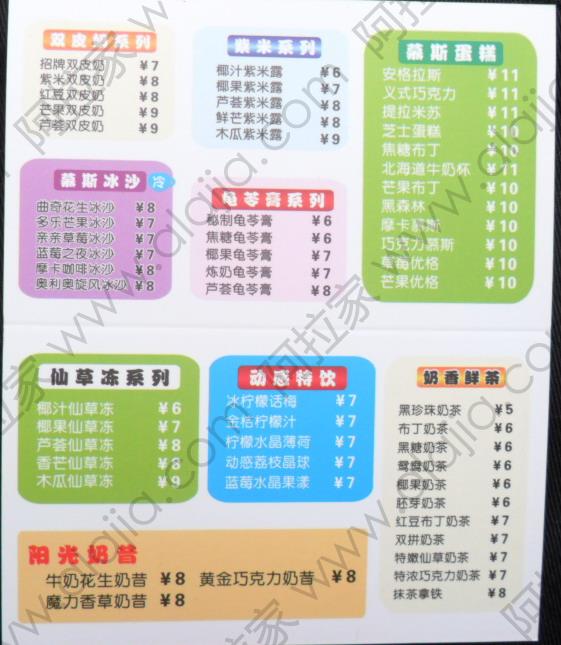 双皮奶系列
招牌双皮奶 ¥7
紫米双皮奶 ¥8
红豆双皮奶 ¥8
芒果双皮奶 ¥9
芦荟双皮奶 ¥9
紫米系列
椰汁紫米露 ¥6
椰果紫米露 ¥7
芦荟紫米露 ¥8
鲜芒紫米露 ¥8
木瓜紫米露 ¥9
慕斯蛋糕
安格拉斯 ¥11
义式巧克力 ¥11
提拉米苏 ¥11
芝士蛋糕 ¥10
焦糖布丁 ¥10
北海道牛奶杯 ¥11
芒果布丁 ¥10
黑森林 ¥10
摩卡慕斯 ¥10
巧克力慕斯 ¥10
草莓优格 ¥10
芒果优格 ¥10
慕斯冰沙 冷
曲奇花生冰沙 ¥8
多乐芒果冰沙 ¥7
亲亲草莓冰沙 ¥7
蓝莓之夜冰沙 ¥7
摩卡咖啡冰沙 ¥8
奥利奥旋风冰沙 ¥8
龟苓膏系列
秘制龟苓膏 ¥6
焦糖龟苓膏 ¥6
椰果龟苓膏 ¥7
炼奶龟苓膏 ¥7
芦荟龟苓膏 ¥8
仙草冻系列
椰汁仙草冻 ¥6
椰果仙草冻 ¥7
芦荟仙草冻 ¥8
香芒仙草冻 ¥8
木瓜仙草冻 ¥9
动感特饮
冰柠檬话梅 ¥7
金桔柠檬汁 ¥7
柠檬水晶薄荷 ¥7
动感荔枝晶球 ¥7
蓝莓水晶果漾 ¥7
奶香鲜茶
黑珍珠奶茶 ¥5
布丁奶茶 ¥6
黑糖奶茶 ¥6
鸳鸯奶茶 ¥6
椰果奶茶 ¥6
胚芽奶茶 ¥6
红豆布丁奶茶 ¥7
双拼奶茶 ¥7
特嫩仙草奶茶 ¥7
特浓巧克力奶茶 ¥7
抹茶拿铁 ¥8
阳光奶昔
牛奶花生奶昔 ¥8 黄金巧克力奶昔 ¥8
魔力香草奶昔 ¥8
阿拉家 www.alajia.com